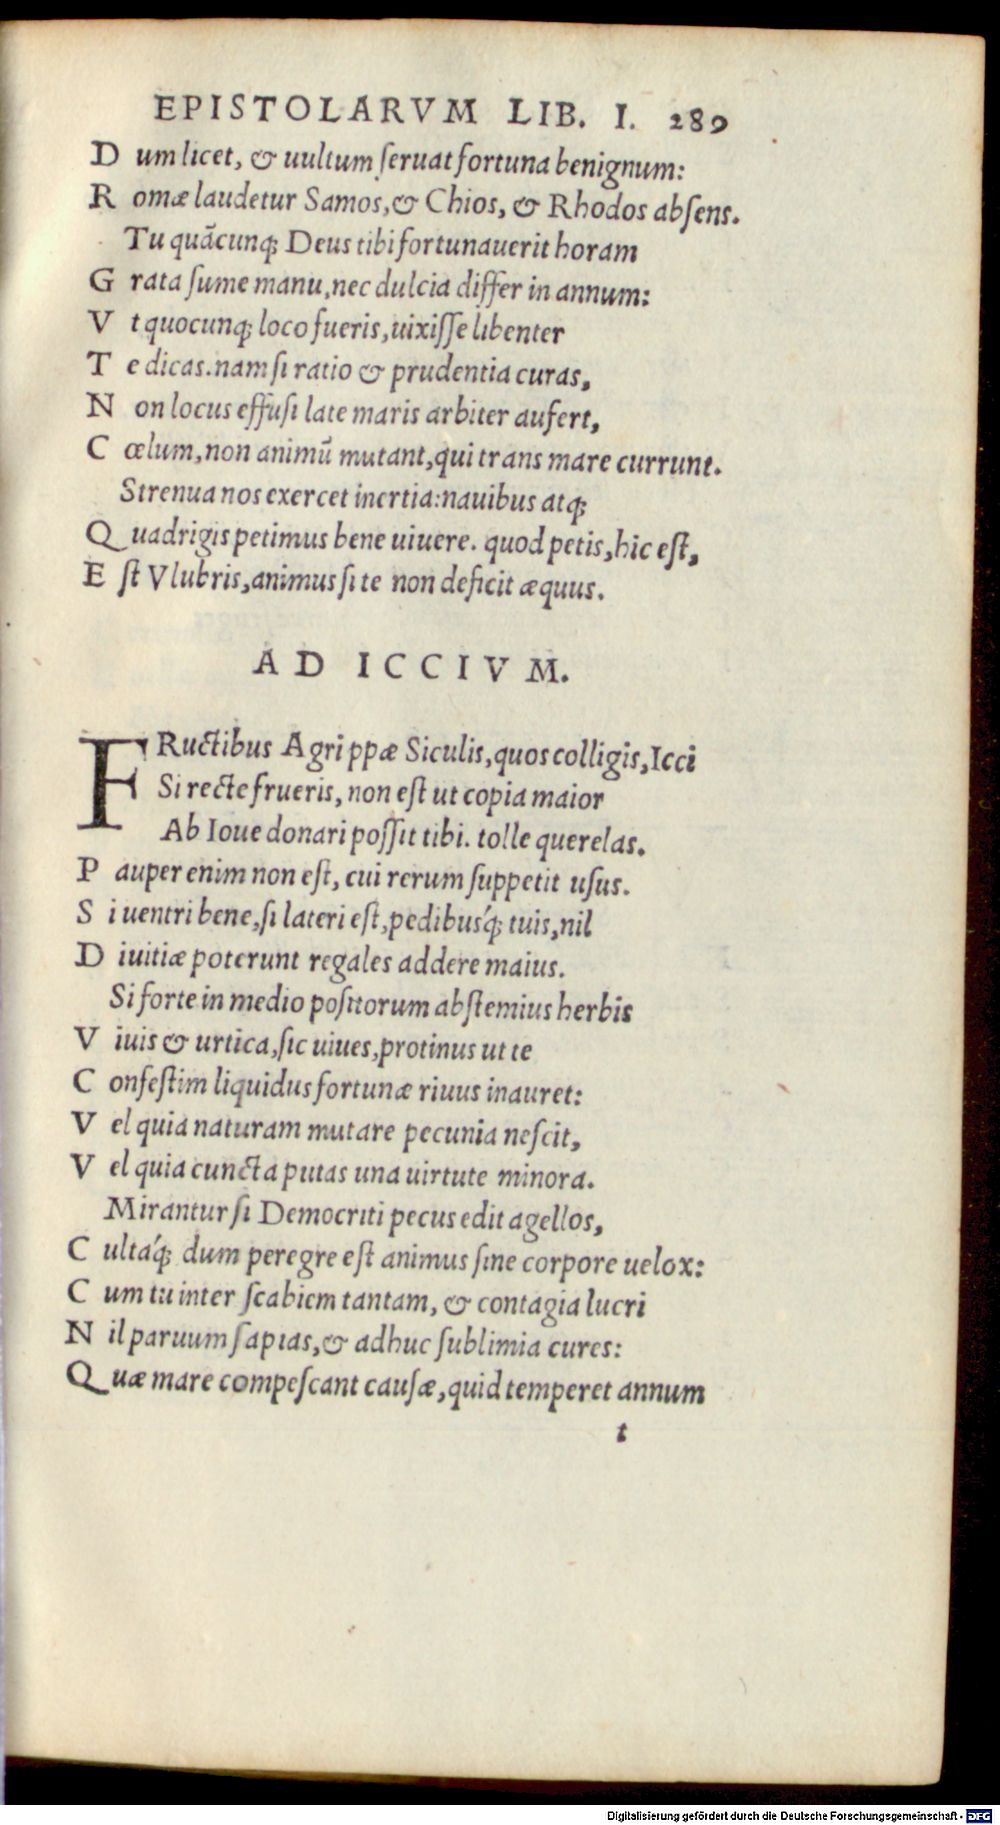 EPISTOLARVM LIB. I. 289
D um licet, & uultum ſeruat fortuna benignum:
R omæ laudetur Samos, & Chios, & Rhodos abſens.
Tu quãcunq; Deus tibi fortunauerit horam
G rata ſume manu, nec dulcia differ in annum:
V t quocunq; loco fueris, uixiſſe libenter
T e dicas. nam ſi ratio & prudentia curas,
N on locus effuſi late maris arbiter aufert,
C œlum, non animũ mutant, qui trans mare currunt.
Strenua nos exercet inertia: nauibus atq;
Q uadrigis petimus bene uiuere. quod petis, hic eſt,
E ſt Vlubris, animus ſi te non deficit æquus.
AD ICCIVM.
FRuctibus Agrippæ Siculis, quos colligis, Icci
Si recte frueris, non eſt ut copia maior
Ab Ioue donari poſſit tibi. tolle querelas.
P auper enim non eſt, cui rerum ſuppetit uſus.
S i uentri bene, ſi lateri eſt, pedibusq́; tuis, nil
D iuitiæ poterunt regales addere maius.
Si forte in medio poſitorum abſtemius herbis
V iuis & urtica, ſic uiues, protinus ut te
C onfeſtim liquidus fortunæ riuus inauret:
V el quia naturam mutare pecunia neſcit,
V el quia cuncta putas una uirtute minora.
Mirantur ſi Democriti pecus edit agellos,
C ultaq́; dum peregre eſt animus ſine corpore uelox:
C um tu inter ſcabiem tantam, & contagia lucri
N il paruum ſapias, & adhuc ſublimia cures:
Q uæ mare compeſcant cauſæ, quid temperet annum
t
Digitalisierung gefördert durch die Deutsche Forschungsgemeinschaft - DFG